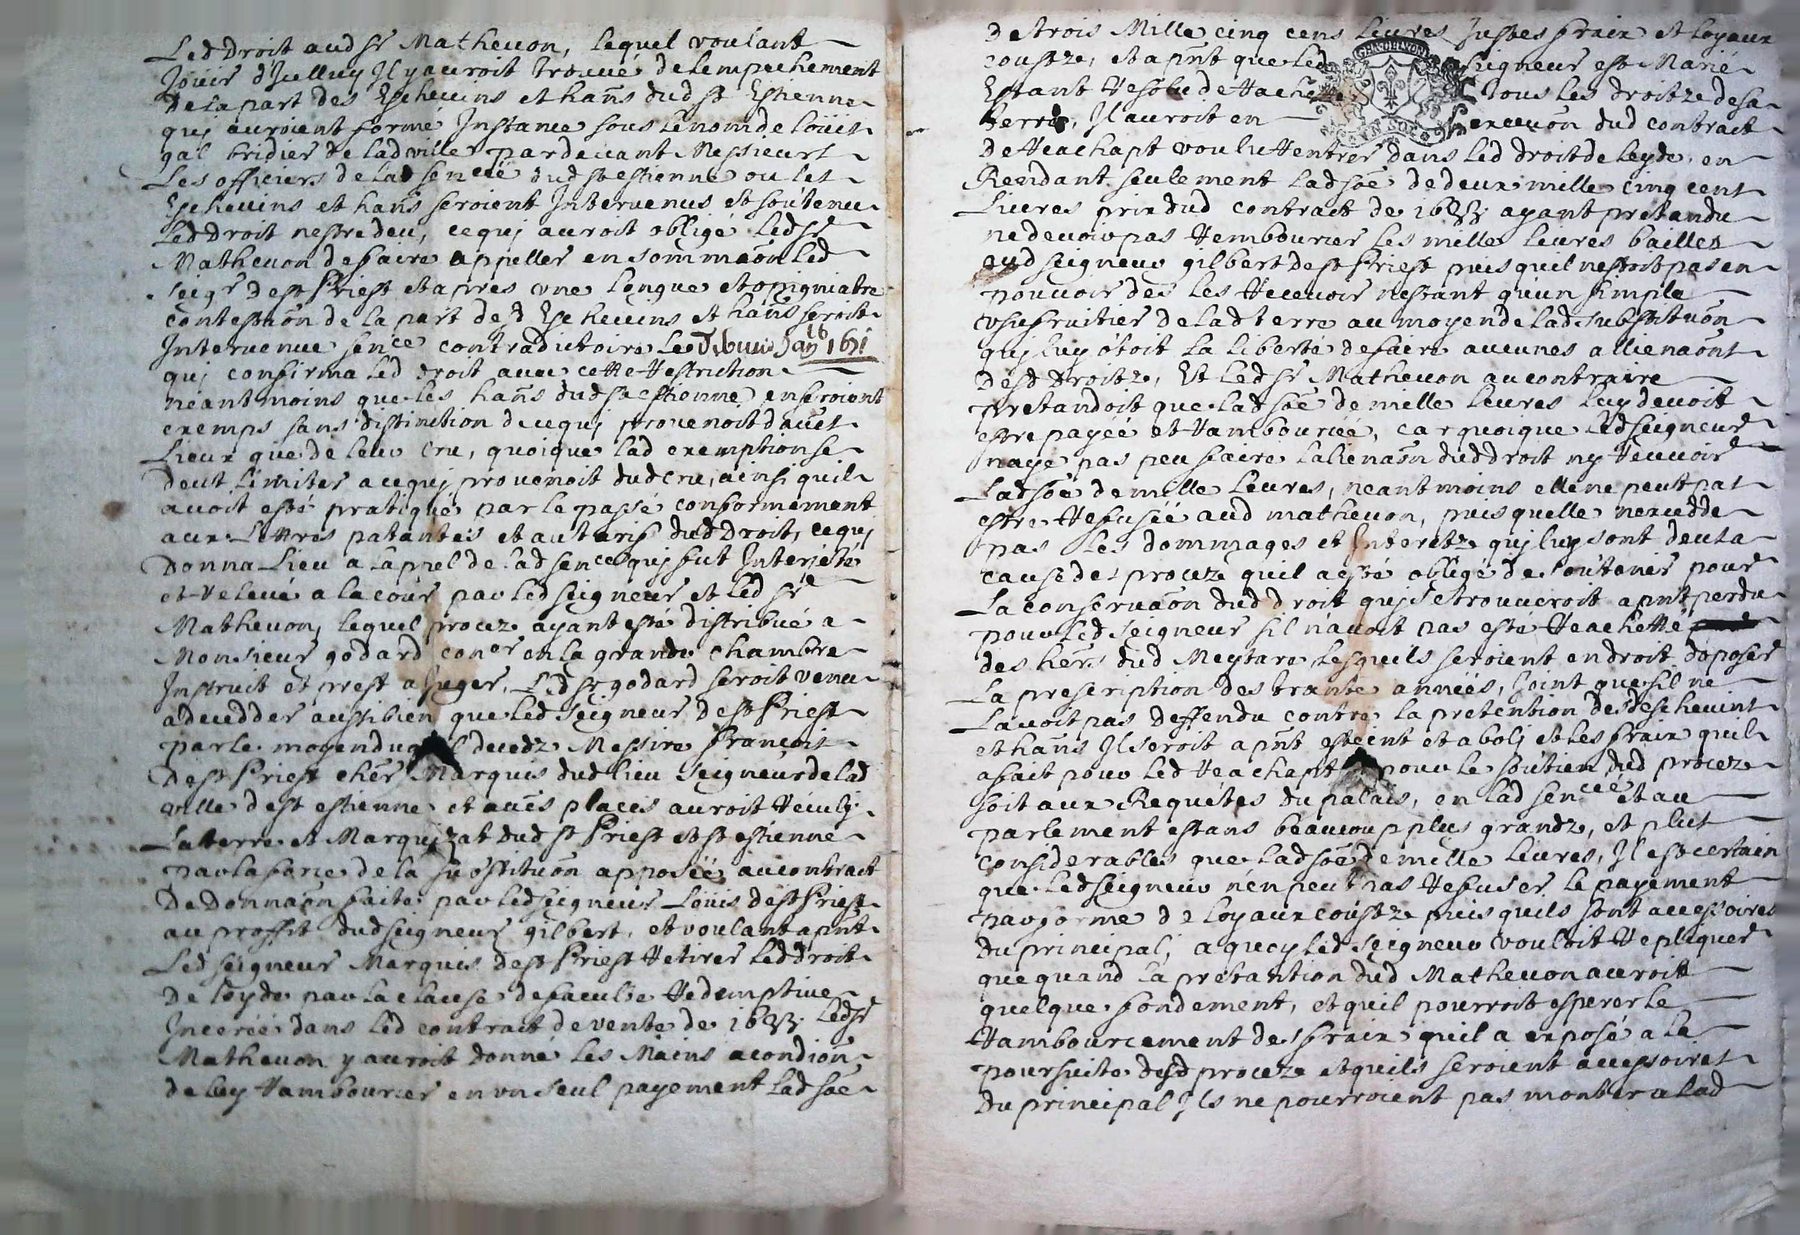 Led Droit aud sr Matheuon, lequel voulant
Jouir d'Jcelluy Jl y auroit trouué de lempechement
De la part des Escheuins et hañs dud st Estienne
quj auroient formé Instance sous le nom de loüis
gal bridier de lad ville pardeuant Messieurs
Les officiers de lad sencée dud st estienne ou les
Escheuins et hañs seroient Interuenus et soûtenu
Led Droit nestre deu, cequj auroit obligé led sr
Matheuon de faire appeller en sommaõn led
seigr de st Priest et apres vne longue et opigniatre
contestaõn de la part desd Escheuins et hañs seroit
Interuenue sence contradictoire le 16 1671
quj confirma led droit auec cette restriction
neantmoins que les hañs dud st estienne en seroient
exemps sans distinction de cequj prouenoit dauēt
Lieux que de leur cru, quoique lad exemption se
deut limiter a cequj prouenoit dud cru, ainsi quil
auoit esté pratiqué par le passé conformement
aux lettres patantes et au tarif dud Droit, cequj
Donna lieu a lapel de lad sence quj fut Interjetté
et releué a la cour par led seigneur et led sr
Matheuon, lequel procez ayant esté distribué a
Monsieur godard coner en la grande chambre
Instruit et prest a Juger, Led sr godard seroit venu
a decedder aussi bien que led seigneur de st Priest
par le moyen duql decedz Messire françois
De st Priest cher Marquis dud lieu seigneur de lad
ville de st estienne et aués places auroit recully
La terre et Marquizat dud st Priest et st estienne
par la force de la substituõn apposée au contract
De Donnaõn faite par led seigneur Loüis de st Priest
au proffit dud seigneur gilbert, et voulant apñt
Led seigneur Marquis de st Priest retirer led droit
De leyde par la clause de faculté redemptiue
Incerée dans led contract de vente de led sr
Matheuon y auroit donné les Mains a condiõn
de luy rambourcer en vn seul payement lad sõe
De trois Mille cinq cens liures Justes fraix et loyaux
coustze, et apñt que led seigneur est Marié
Estant resolu de rachetter tous les droitze de sa
terre, Jl auroit en execuõn dud contract
de reachapt voulu rentrer dans led droit de leyde, en
Rendant seulement lad sõe de deux mille cinq cent
Liures prix dud contract de ayant pretandu
ne deuoir pas rembourcer les mille liures baillés
aud seigneur gilbert de st Priest puis quil nestoit pas en
pouuoir de les receuoir nestant qu'un simple
vsufruitier de lad terre au moyen de lad substituõn
quj luy ôtoit la liberté de faire aucunes allienaõns
Desd Droitze, Et led sr Matheuon au contraire
pretandoit que lad sõe de mille liures luy deuoit
estre payée et rambourcée, car quoique led seigneur
naye pas peu faire lalienaõn dud droit ny receuoir
Lad sõe de mille liures, neantmoins elle ne peut pas
estre refusée aud matheuon, puis quelle nexcedde
pas les dommages et Interetze quj luy sont deus a
cause des proceze quil a esté obligé de soûtenir pour
La conseruaõn dud droit quj se trouueroit apñt perdu
pour led seigneur sil n'auoit pas esté reachetté
des hers dud Meytare lesquels seroient en droit doposer
La prescription des trante années, Joint que sil ne
Lauoit pas deffendu contre la pretention desd escheuins
et hañs Jl seroit apñt esteint et abolj et les fraix quil
a fait pour led reachapt pour le soûtien dud proceze
soit aux Requêtes du palais, en lad sencée et au
parlement estans beaucoup plus grandz, et plus
considerables que lad sõe de mille liures, Jl est certain
que led seigneur n'en peut pas refuser le payement
par forme de loyaux coustze puis quils sont accessoires
du principal, a quoy led seigneur vouloit repliquer
que quand la pretantion dud Matheuon auroit
quelque fondement, et quil pourroit esperer le
rambourcement des fraix quil a exposé a la
poursuite desd proceze et quils seroient accessoires
du principal, Jls ne pourroient pas monter a lad